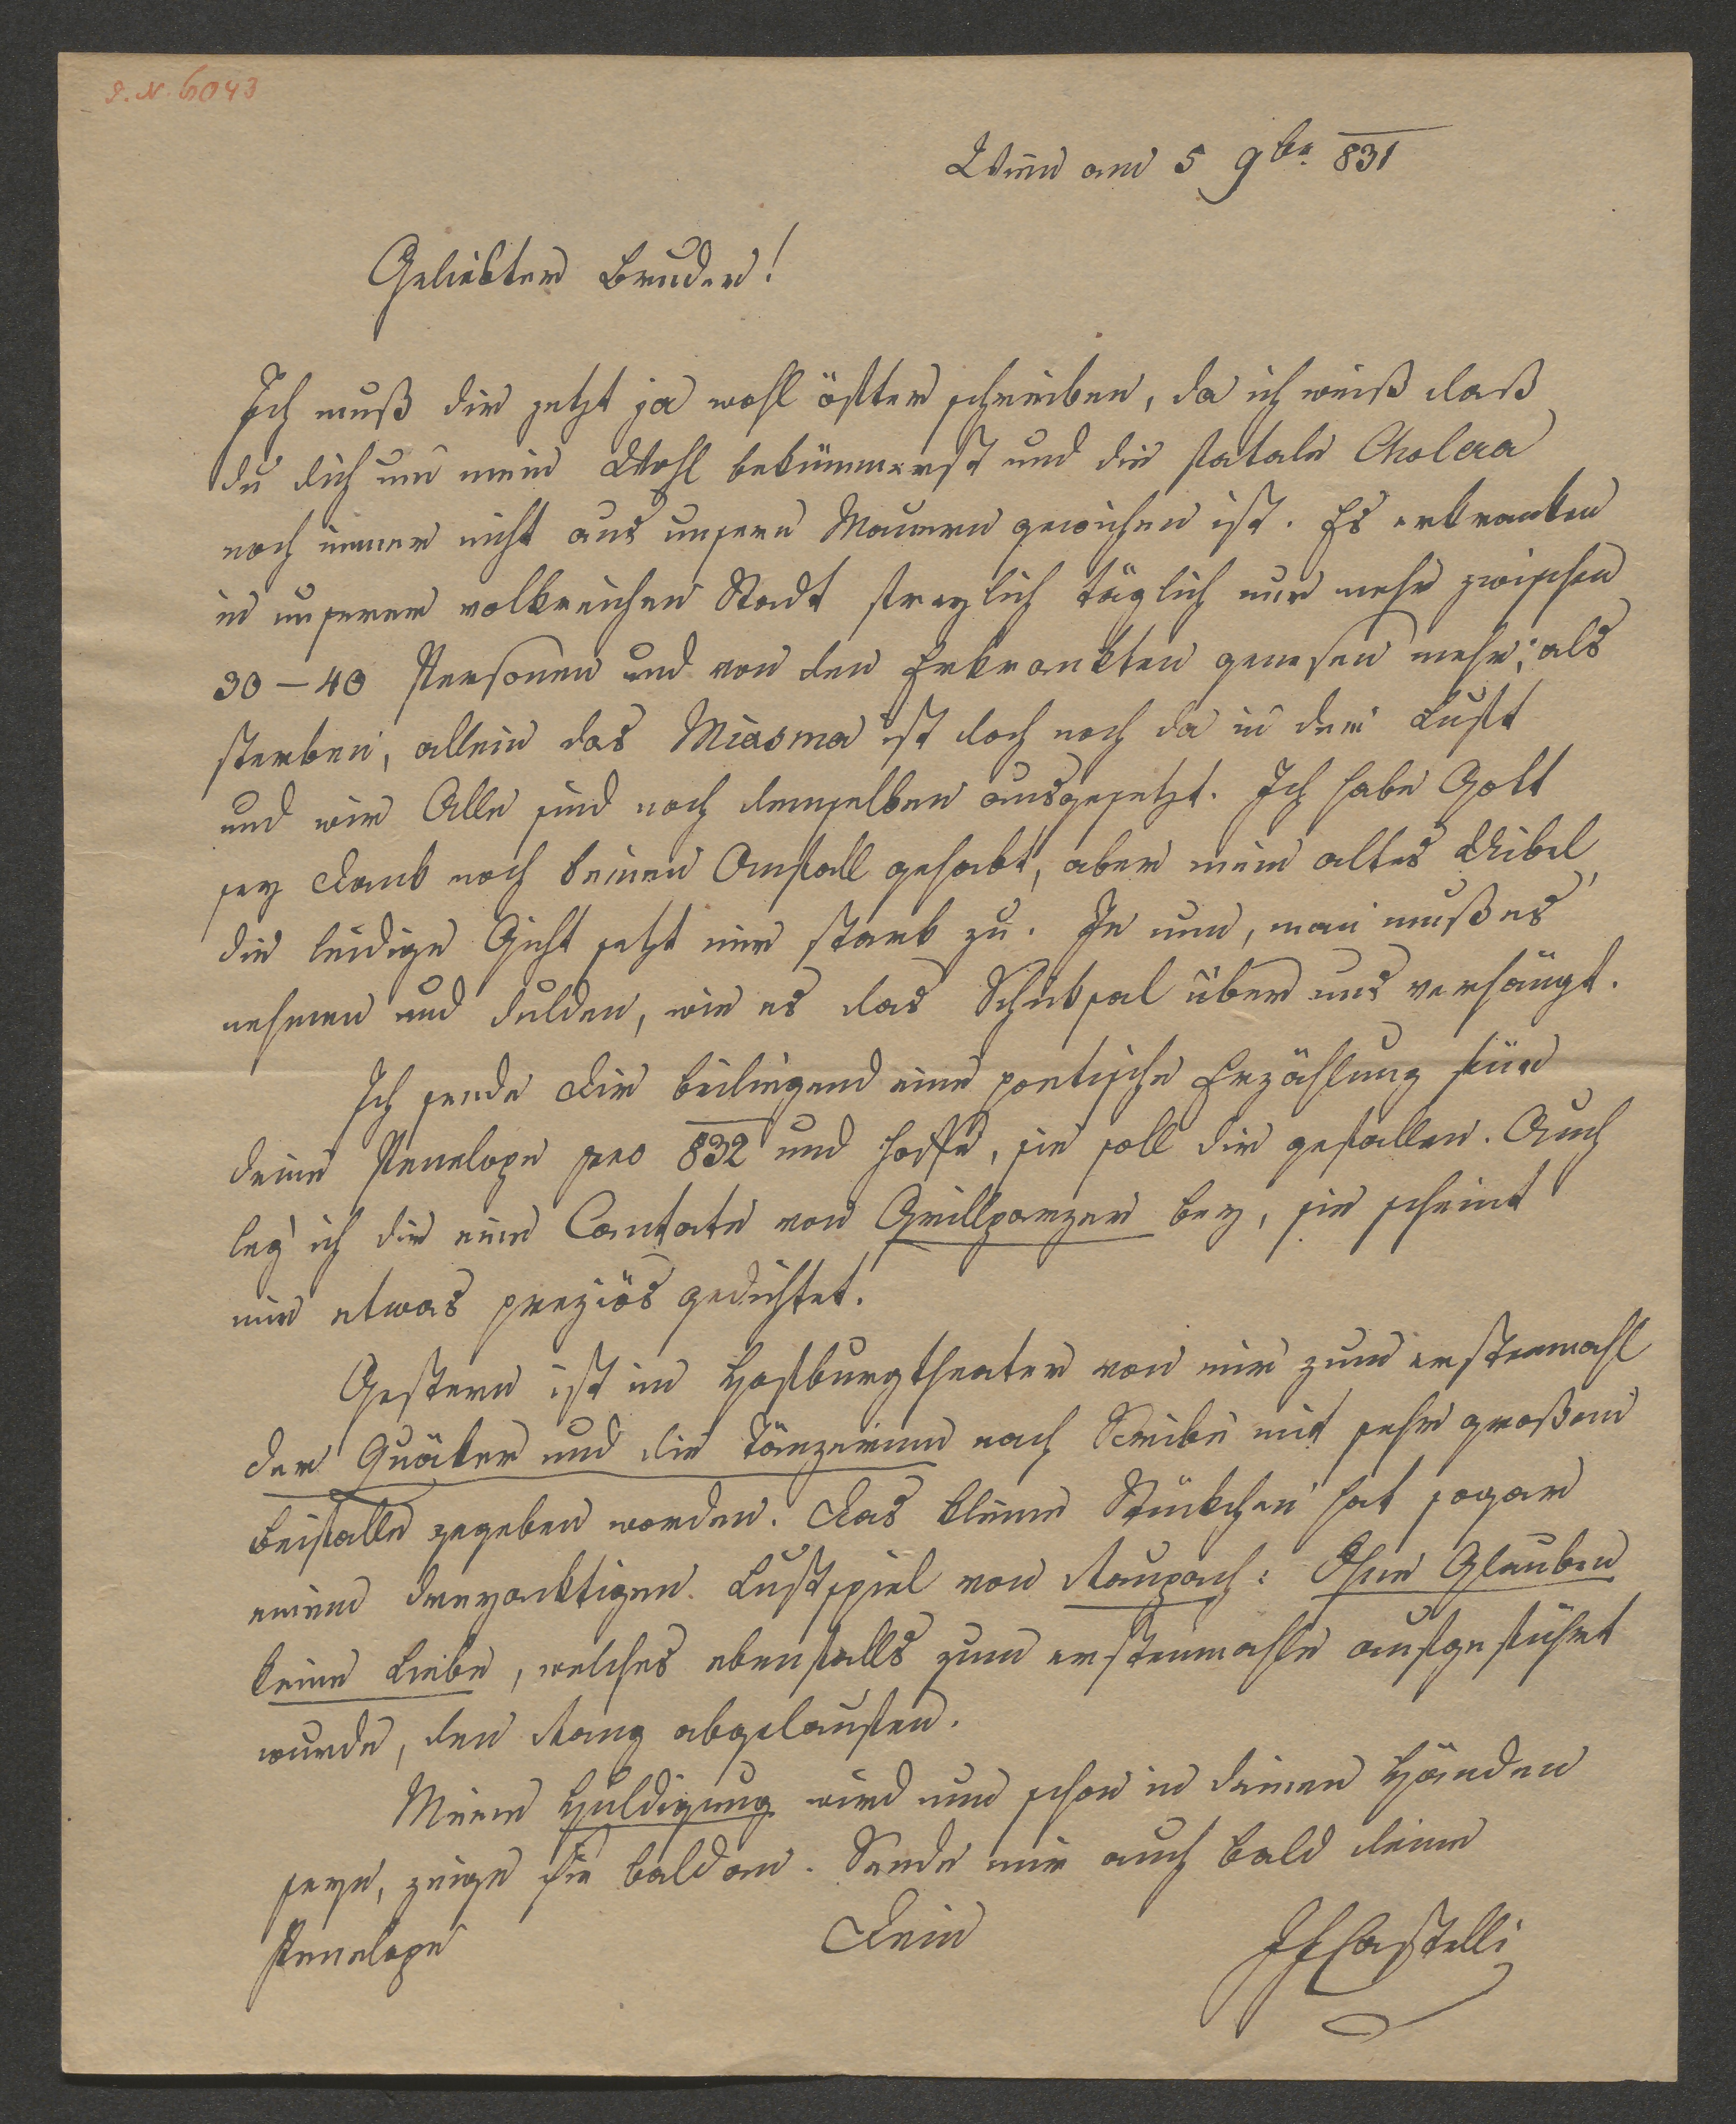 I. N. 6043
Wien am 5 9br 831
Geliebter Bruder!
Ich muß dir jetzt ja wohl öfter schreiben, da ich weiß daß
du dich um mein Wohl bekümmerst und die fatale Cholera
noch immer nicht aus unsern Mauern gewichen ist. Es erkranken
in unserer volkreichen Stadt freylich täglich nur mehr zwischen
30–40 Personen und von den Erkrankten genesen mehr, als
sterben, allein das Miasma ist doch noch da in der Luft
und wir Alle sind noch demselben ausgesetzt. Ich habe Gott
sey Dank noch keinen Anfall gehabt, aber mein altes Uibel,
die leidige Gicht setzt mir stark zu. Je nun, man muß es
nehmen und dulden, wie es das Schiksal über uns verhängt.
Ich sende Dir beiliegend eine poetische Erzählung für
deine Penelope pro 832 und hoffe, sie soll dir gefallen. Auch
leg' ich dir eine Cantate von Grillparzer bey, sie scheint
mir etwas preziös gedichtet.
Gestern ist im Hofburgtheater von mir zum erstenmahl
der Quäker und die Tänzerinn nach Scribe mit sehr großem
Beifalle gegeben worden. Das kleine Stückchen hat sogar
einem dreyacktigen Lustspiel von Raupach: Ohne Glauben
keine Liebe, welches ebenfalls zum erstenmahle aufgeführt
wurde, den Rang abgelaufen.
Meine Huldigung wird nun schon in deinen Händen
seyn, zeige sie bald an. Sende mir auch bald deine
Penelope
Dein
JFCastelli